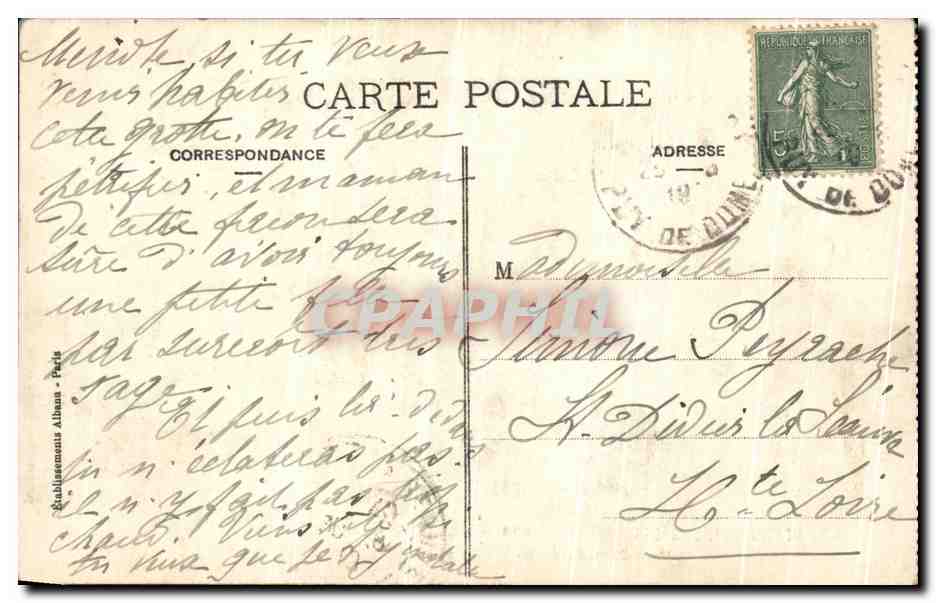 si tu veux
venir habiter
cette grotte, on te fera
pétrifier, et maman
de cette façon sera
sûre d'avoir toujours
une petite fille
par surcroit très
sage
Et puis là-dedans
tu n'éclateras pas.
il n'y fait pas trop
chaud. Viens vite
tu veux que je t'y installe
CARTE POSTALE
CORRESPONDANCE
ADRESSE
Mademoiselle
Simone Peyrache
St. Didier la Séauve
Hte Loire
REPUBLIQUE FRANÇAISE
15
POSTES
PUY DE DOME
DE DOME
Etablissements Albanu - Paris
CPAPHIL